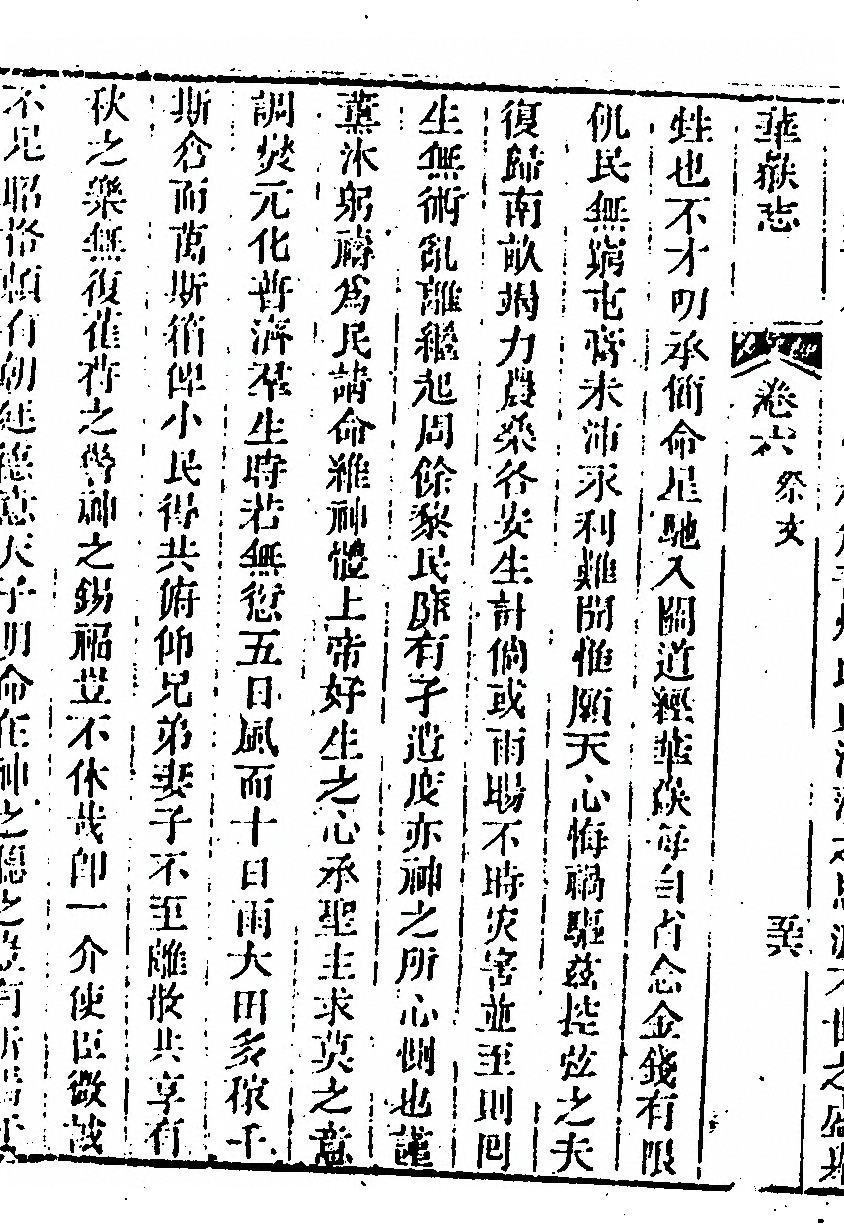 華嶽志
卷六
祭文
甡也不才叨承簡命星馳入關道經華嶽每自省念金錢有限
飢民無窮屯膏未沛永利難開惟願天心悔禍驅茲控弦之夫
復歸南畝竭力農桑各安生計倘或雨暘不時災害並至則囘
生無術亂離繼起周餘黎民靡有孑遺度亦神之所心惻也謹
薰沐躬禱為民請命維神體上帝好生之心承聖主求莫之意
調燮元化普濟羣生時若無愆五日風而十日雨大田多稼千
斯倉而萬斯箱俾小民得共俯仰兄弟妻子不至離散共享有
秋之樂無復萑苻之警神之錫福豈不休哉卽一介使臣微誠
不足昭格頫有朝廷德意天子明命在神之聽之豈有所